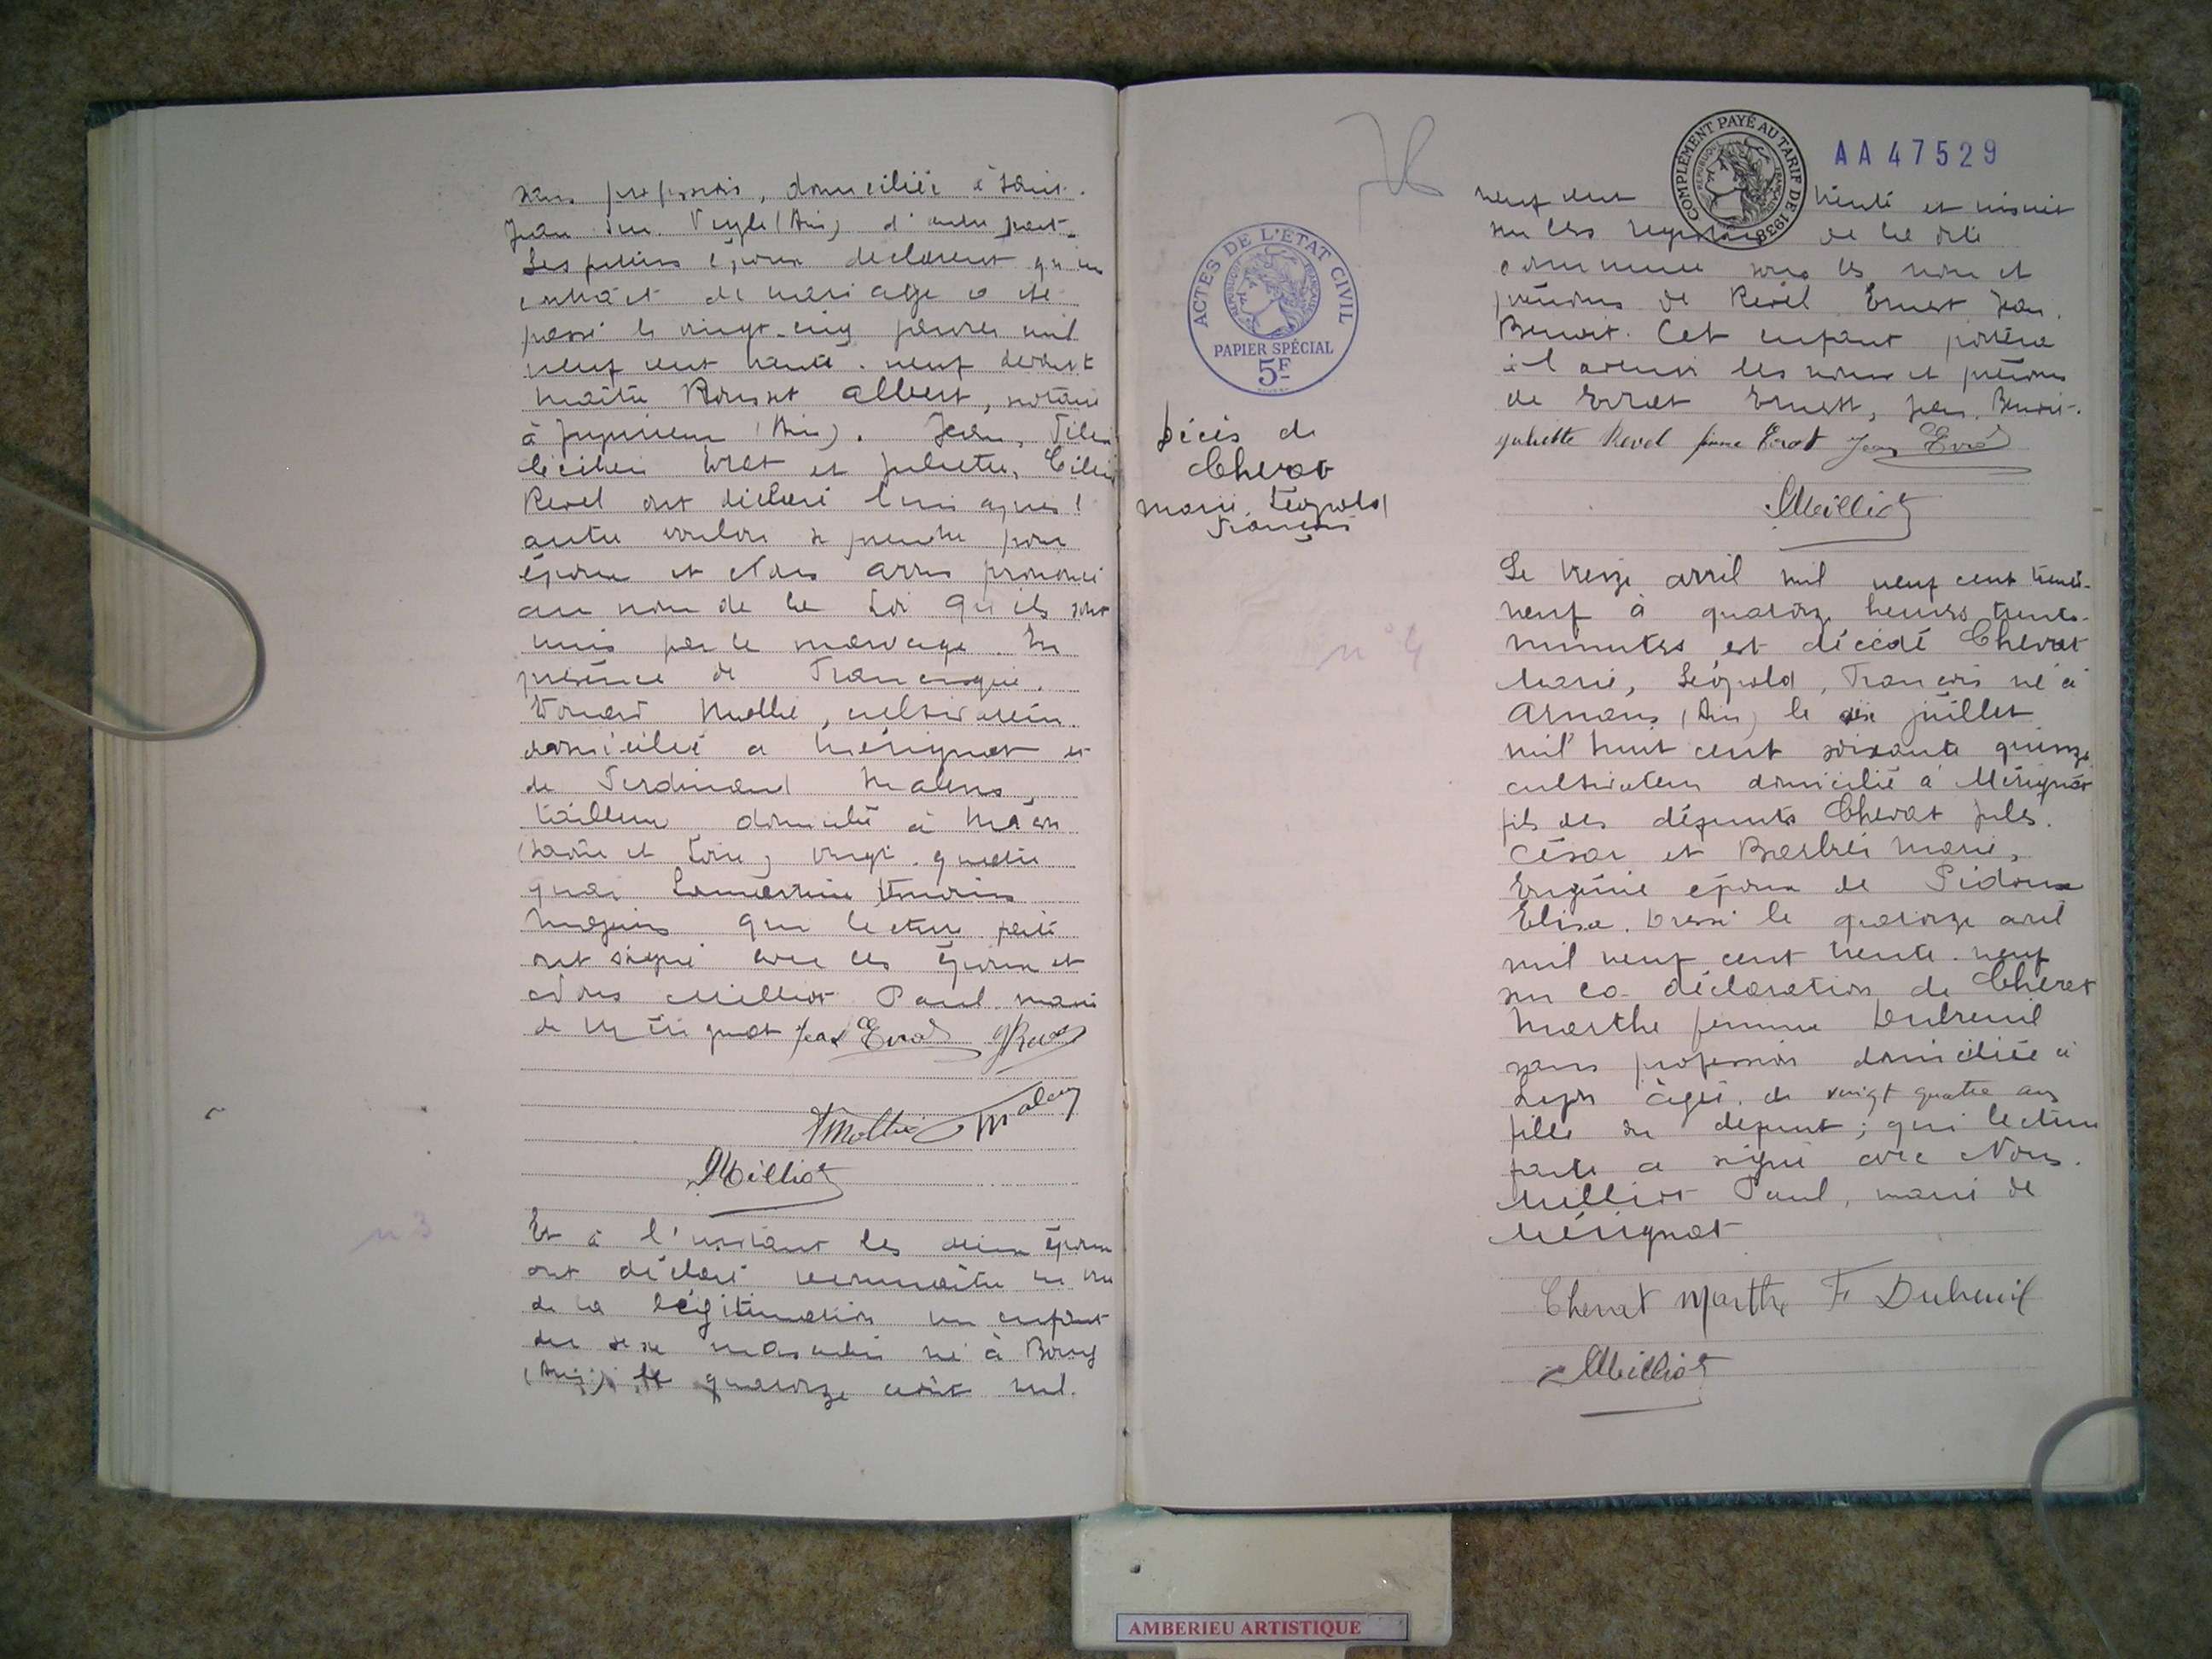 sans profession, domiciliée à Saint-
Jean sur Veyle (Ain) d'autre part.
Les futurs époux déclarent qu'un
contrat de mariage a été
passé le vingt-cinq janvier mil
neuf cent trente-neuf devant
Maître Rousset Albert, notaire
à Jujurieux (Ain). Jean,
Evrat et Juliette,
Revel ont déclaré l'un après l'
autre vouloir se prendre pour
époux et Nous avons prononcé
au nom de la Loi qu'ils sont
unis par le mariage. En
présence de Francisque,
Mollie, cultivateur
domicilié à Mérignat et
de Ferdinand
tailleur domicilié à Macon
(Saône et Loire) vingt-quatre
quai Lamartine témoins
majeurs qui lecture faite
ont signé avec les époux et
Nous Milliot Paul maire
de Mérignat Jean Evrat JRevel
Milliot
n 3
Et à l'instant les deux époux
ont déclaré reconnaître en vue
de la légitimation un enfant
du sexe masculin né à Bourg
(Ain) le quatorze août mil
AA 47529
COMPLÉMENT PAYÉ AU TARIF DE 1938
RÉPUBLIQUE FRANÇAISE
neuf cent trente et inscrit
sur les registres de la dite
commune sous les nom et
prénoms de Revel Ernest Jean
Benoit. Cet enfant portera
à l'avenir les noms et prénoms
de Evrat Ernest, Jean, Benoit.
Juliette Revel femme Evrat Jean Evrat
Milliot
ACTES DE L'ÉTAT CIVIL
RÉPUBLIQUE FRANÇAISE
PAPIER SPÉCIAL
5F
Décès de
Chevat
Marie, Léopold
François
n° 4
Le treize avril mil neuf cent trente-
neuf à quatorze heures trente-
minutes est décédé Chevat
Marie, Léopold, François né à
Arnans (Ain) le juillet
mil huit cent soixante quinze
cultivateur domicilié à Mérignat
fils des défunts Chevat Jules
César et Barbier Marie,
Eugénie époux de Pidoux
Elisa. Dressé le quatorze avril
mil neuf cent trente-neuf
sur la déclaration de Chevat
Marthe femme Dubreuil
sans profession domiciliée à
Lyon âgée de vingt quatre ans
fille du défunt; qui lecture
faite a signé avec Nous
Milliot Paul, maire de
Mérignat
Chevat Marthe F Dubreuil
Milliot
AMBERIEU ARTISTIQUE